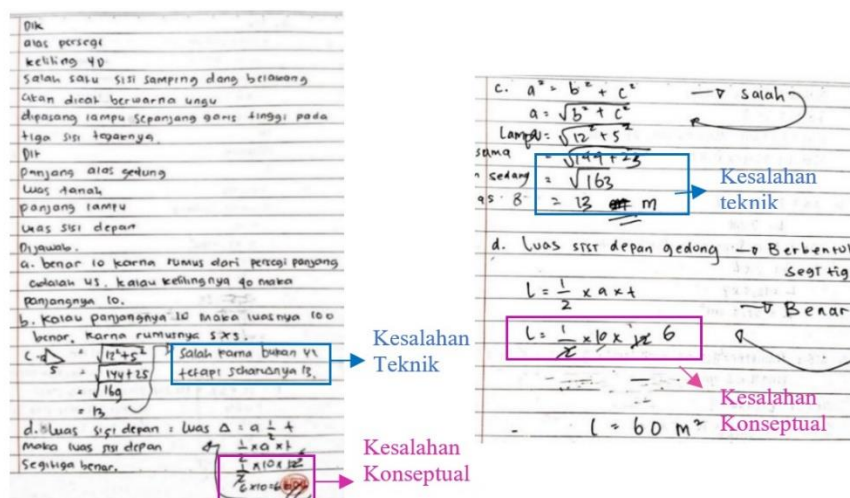 Dik
alas persegi
keliling 40
salah satu sisi samping dang belakang
akan dicat berwarna ungu
dipasang lampu sepanjang garis tinggi pada
tiga sisi tegaknya
Dit
panjang alas gedung
luas tanah
panjang lampu
luas sisi depan
Dijawab.
a. benar 10 karna rumus dari persegi panjang
adalah 4s. kalau kelilingnya 40 maka
panjangnya 10.
b. kalau panjangnya 10 maka luasnya 100
benar, karna rumusnya s×s.
c. = √12²+5²
5 = √144+25
= √169
= 13
Salah karna bukan
tetapi seharusnya 13.
Kesalahan
Teknik
d. luas sisi depan = luas Δ = a ½ t
maka luas sisi depan
segitiga benar.
½ × a × t
½ × 10 × 12
6×10=
Kesalahan
Konseptual
c. a² = b² + c² → salah
a = √b² + c²
Lampu = √12² + 5²
sama = √144+23
sedang = √163
as. 8 = 13 m
Kesalahan
teknik
d. Luas sisi depan gedong → Berbentu
segi tig
L = ½ × a × t
→ Benar
L = ½ × 10 × 12 6
Kesalahan
Konseptual
L = 60 m²